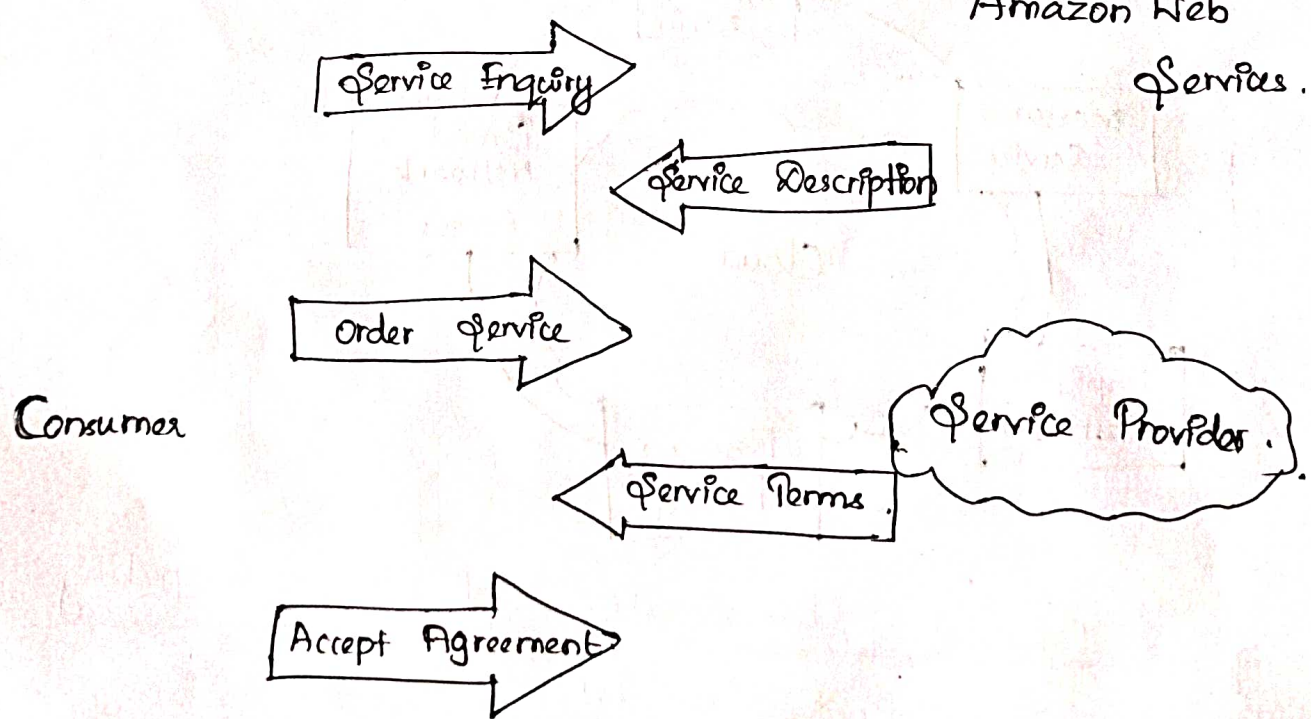 Amazon Web
Services.
Service Enquiry
Service Description
Order Service
Consumer
Service Provider.
Service Terms.
Accept Agreement